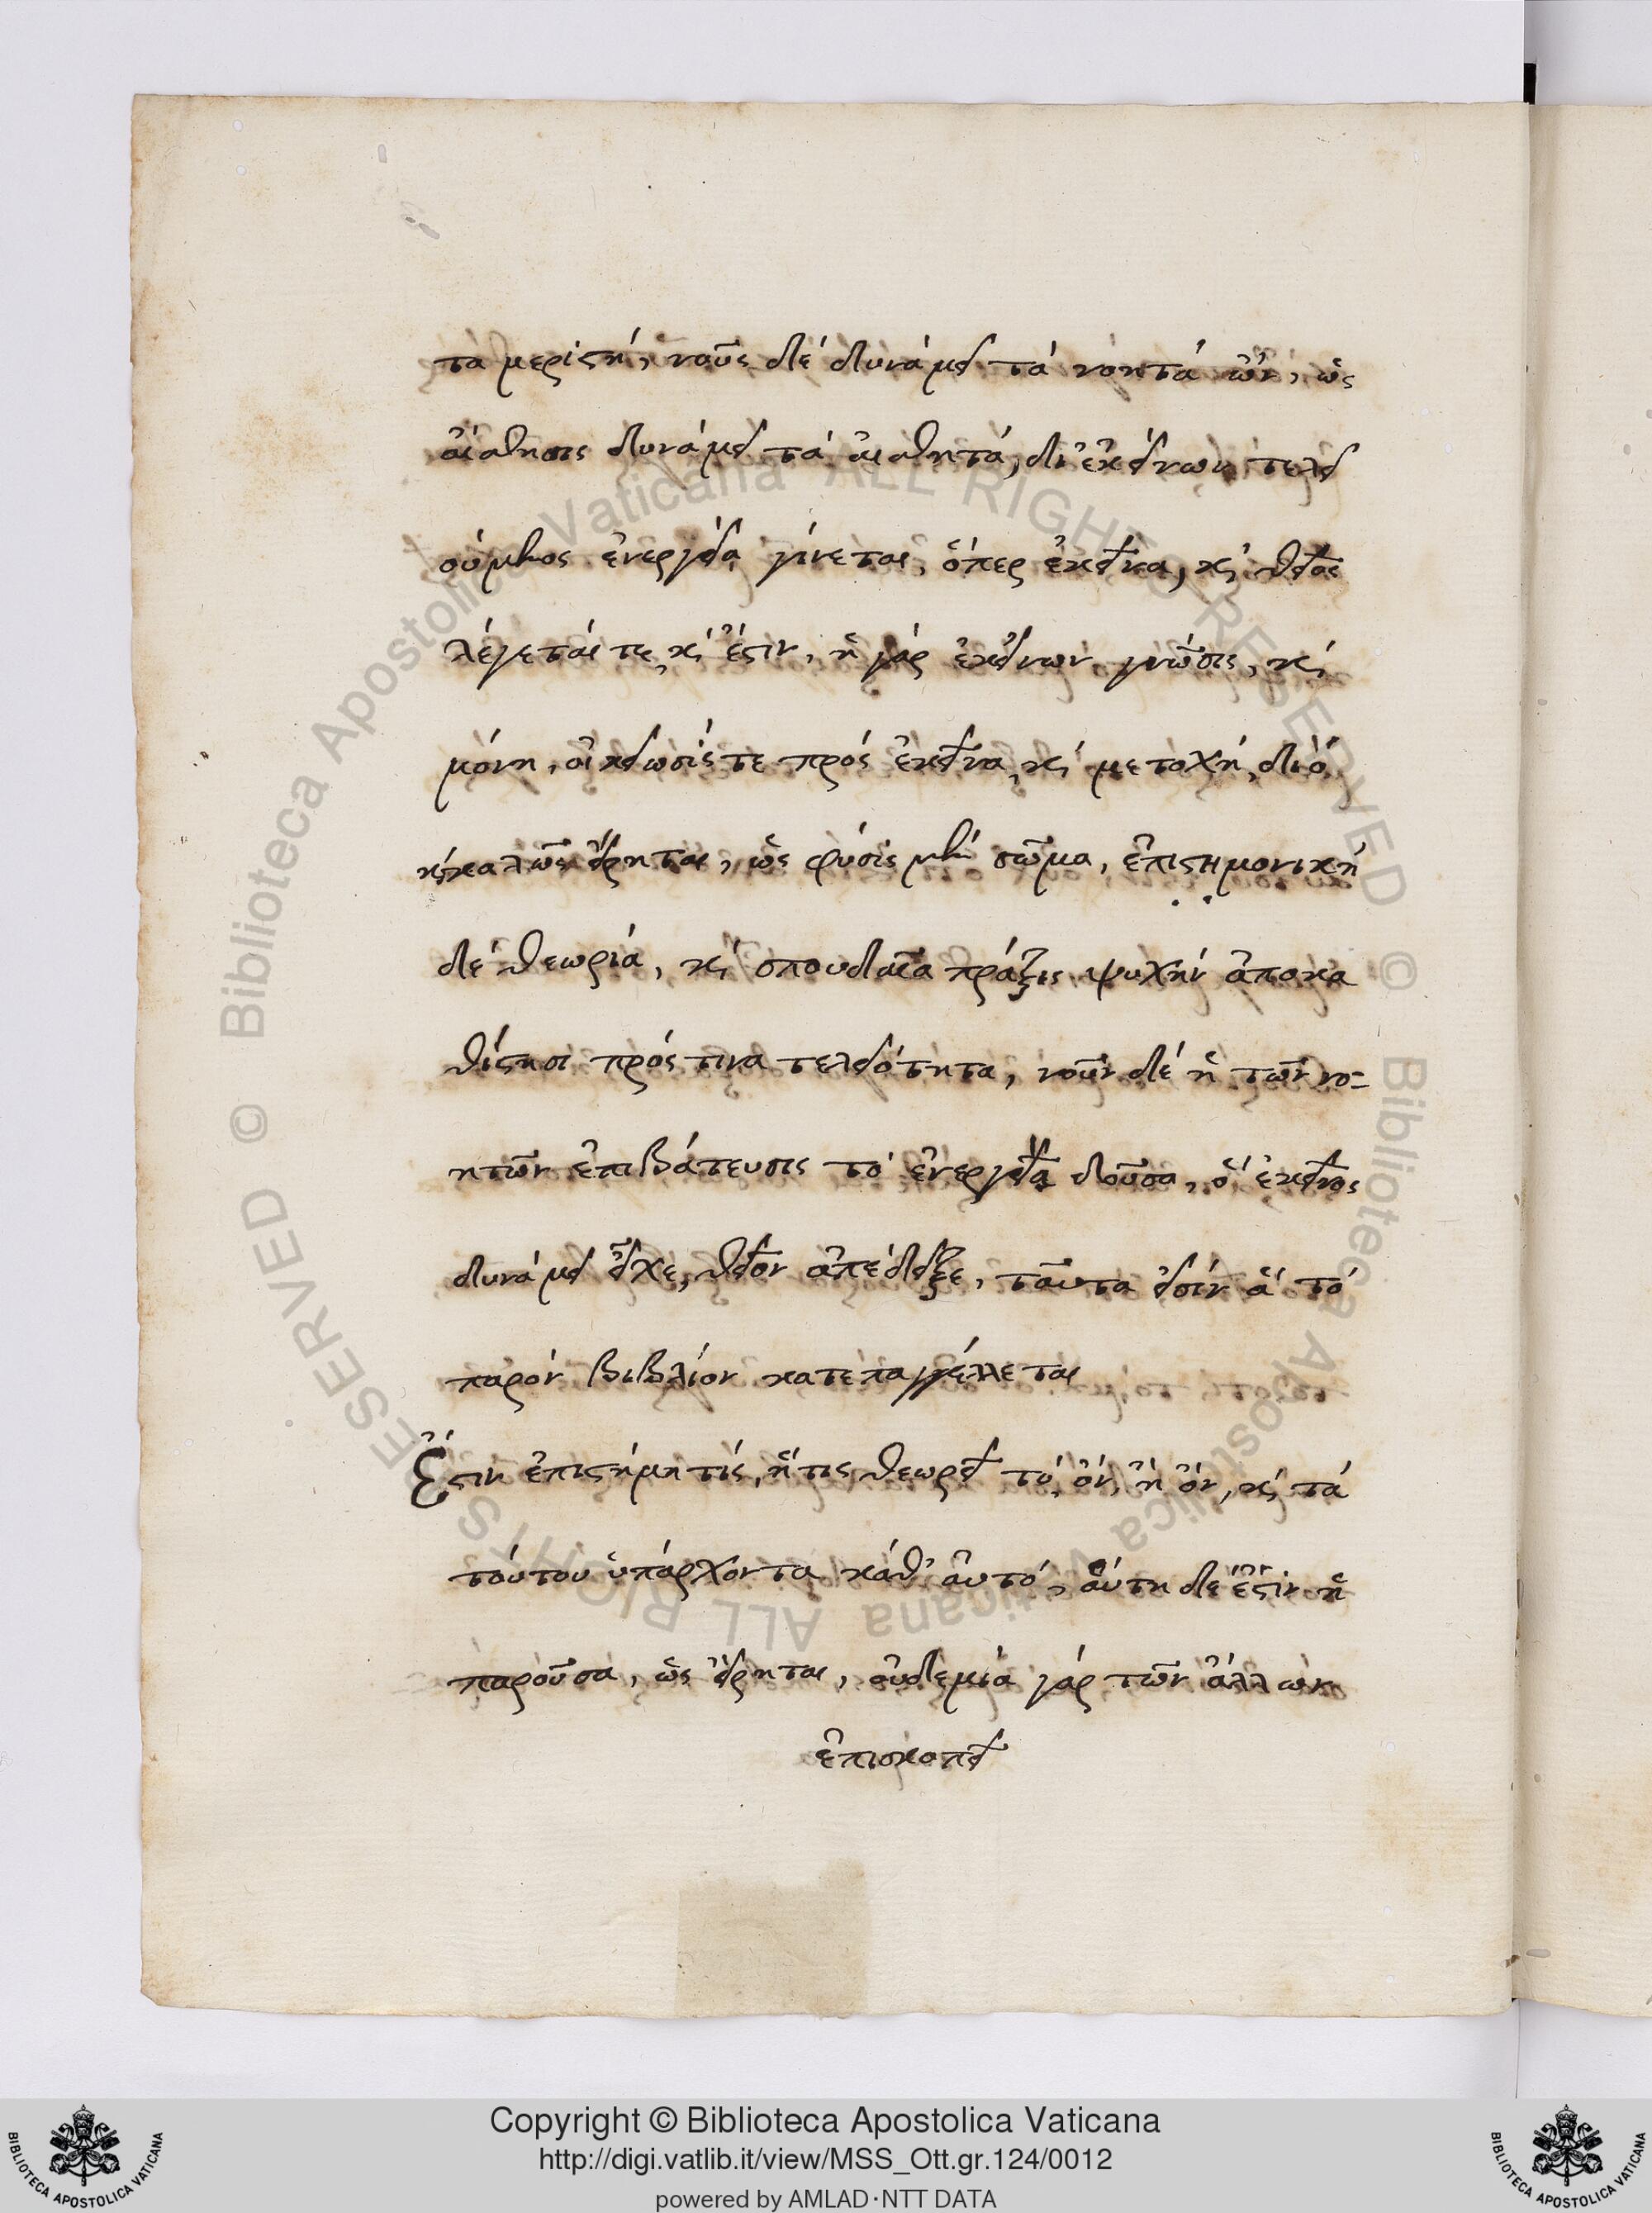 τα μεριστή, νοῦς δὲ δυνάμει τὰ νοητὰ ὢν, ὡς
αἴσθησις δυνάμει τὰ αἰσθητὰ, δι᾽ ἐκείνων τελει
ούμενος ἐνεργείᾳ γίνεται, ὅπερ ἐκεῖνα, καὶ θεῖος
λέγεταί τε καὶ ἔστιν, ἡ γὰρ ἐκείνων γνῶσις, καὶ
μόνη, οἰκείωσίς τε πρὸς ἐκεῖνα, καὶ μετοχή, διὸ
καὶ καλῶς εἴρηται, ὡς φύσις μὲν σῶμα, ἐπιστημονικὴ
δὲ θεωρία, καὶ σπουδαῖα πράξις ψυχὴν ἀποκα
θίστησι πρός τινα τελειότητα, νοῦν δὲ ἡ τῶν νο-
ητῶν ἐπιβάτευσις τὸ ἐνεργείᾳ δοῦσα, ὃ ἐκεῖνος
δυνάμει εἶχε, θεῖον ἀπέδειξε, ταῦτα εἰσὶν ἃ τὸ
παρὸν βιβλίον κατεπαγγέλλεται
Ἔστιν ἐπιστήμη τίς, ἥτις θεωρεῖ τὸ ὂν, ᾗ ὂν, καὶ τὰ
τούτου ὑπάρχοντα κάθ᾽ αὑτό, αὕτη δε ἔστιν ἡ
παροῦσα, ὡς εἴρηται, οὐδεμία γὰρ τῶν ἄλλων
ἐπισκοπεῖ
© Biblioteca Apostolica Vaticana ALL RIGHTS RESERVED © Biblioteca Apostolica Vaticana ALL RIGHTS RESERVED
BIBLIOTECA APOSTOLICA VATICANA
Copyright © Biblioteca Apostolica Vaticana
http://digi.vatlib.it/view/MSS_Ott.gr.124/0012
powered by AMLAD·NTT DATA
BIBLIOTECA APOSTOLICA VATICANA